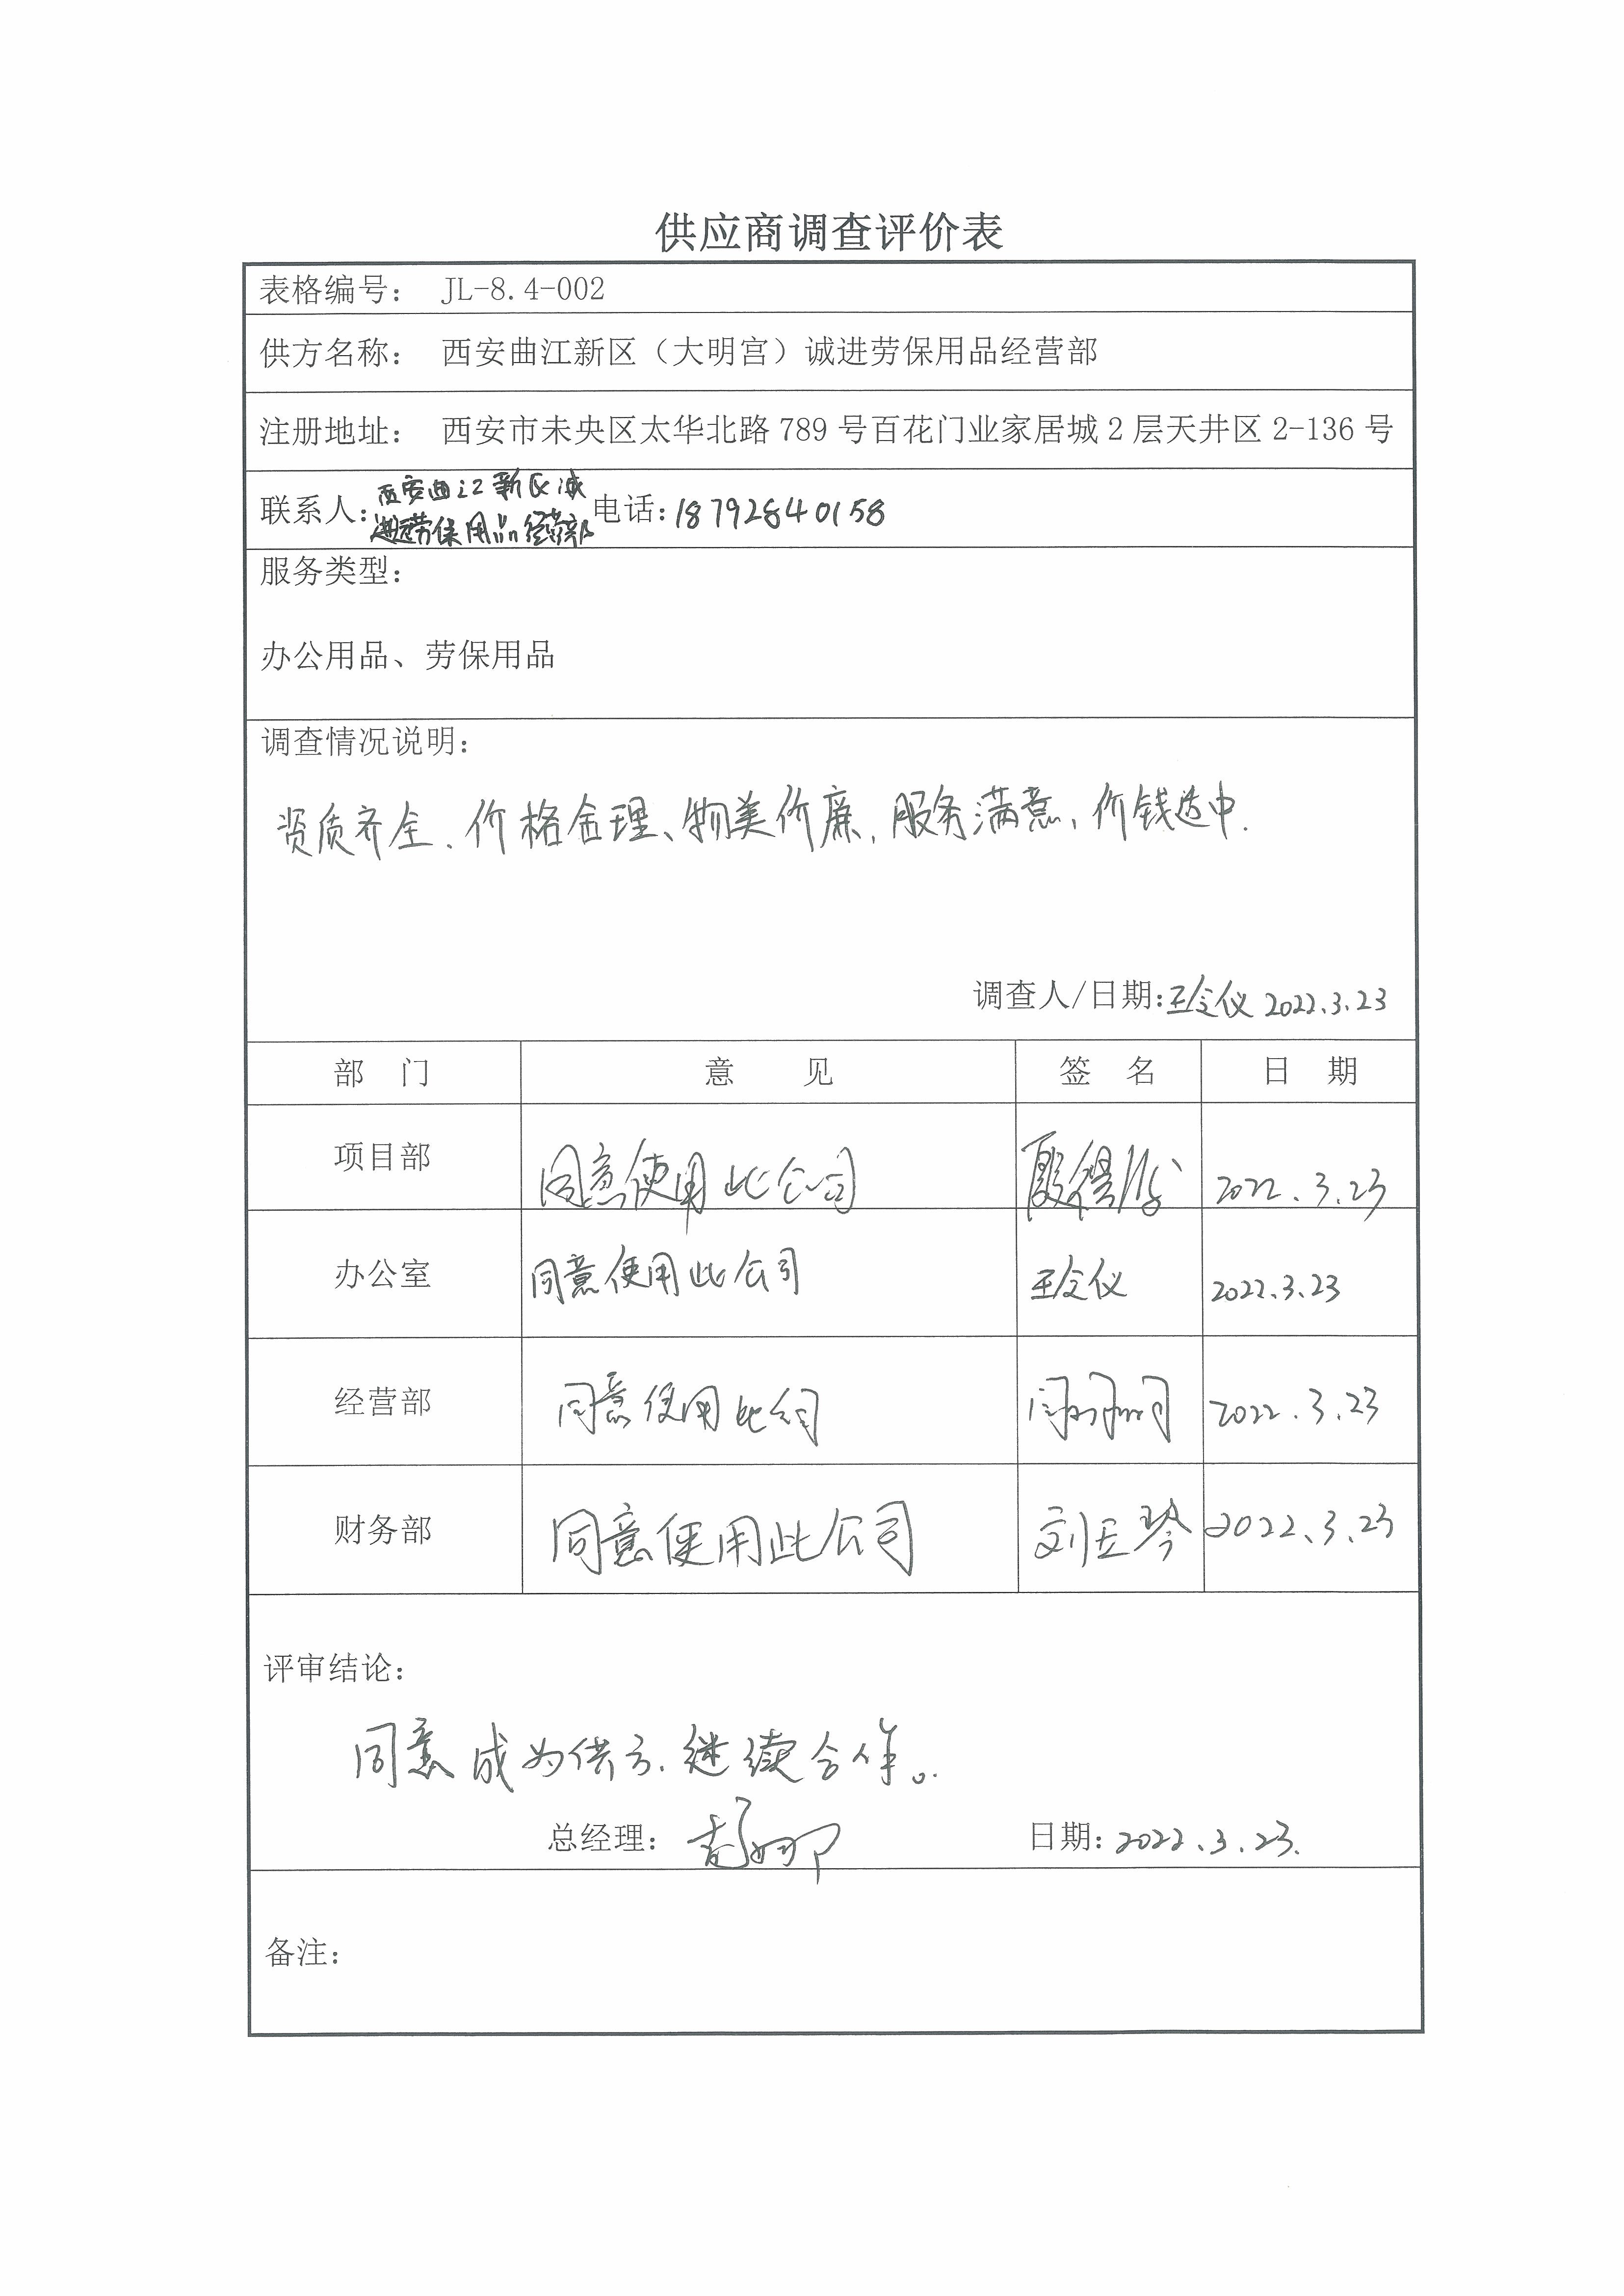 供应商调查评价表
表格编号： JL-8.4-002
供方名称： 西安曲江新区（大明宫）诚进劳保用品经营部
注册地址： 西安市未央区太华北路 789 号百花门业家居城 2 层天井区 2-136 号
西安曲江新区诚
联系人： 进劳保用品经营部 电话：18792840158
服务类型：
办公用品、劳保用品
调查情况说明：
资质齐全、价格合理、物美价廉，服务满意，价钱适中.
调查人/日期：王令仪 2022.3.23
部 门 意 见 签 名 日 期
项目部 同意使用此公司 2022.3.23
办公室 同意使用此公司 王令仪 2022.3.23
经营部 同意使用此公司 2022.3.23
财务部 同意使用此公司 2022.3.23
评审结论：
同意成为供方.继续合作。
总经理： 日期：2022.3.23.
备注：